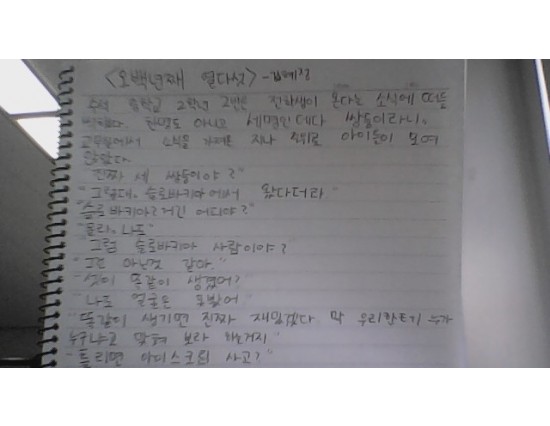 <오백년째 열다섯> -김혜정
수석 중학교 2학년 2반은 전학생이 온다는 소식에 떠들
썩했다. 한명도 아니고 세명인데다 쌍둥이라니.
교무실에서 소식을 가져온 지나 주위로 아이들이 모여
앉았다
"진짜 세 쌍둥이야?"
"그렇대. 슬로바키아에서 왔다더라"
"슬로바키아? 거긴 어디야?"
"몰라. 나도"
"그럼 슬로바키아 사람이야?
"그건 아닌것 같아."
"셋이 똑같이 생겼어?
"나도 얼굴은 못봤어"
"똑같이 생기면 진짜 재밌겠다 막 우리한테 누가
누구냐고 맞혀 보라 하는거지"
"틀리면 아이스크림 사고?"